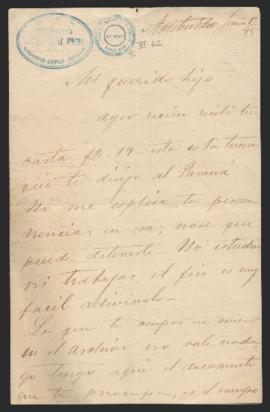 Junio 1º
95
VI-62
Mi querido hijo
ayer recien recibi tu
carta fh. 19. este es la tercera
que te dirijo al Paraná
No me esplico tu perma-
nencia en esa, nose que
puede detenerte. No estudias
ni trabajas el fin es muy
facil adivinarlo -
Lo que te
en el archivo no vale nada,
yo tengo aqui el documento
que te preocupa, es el campo